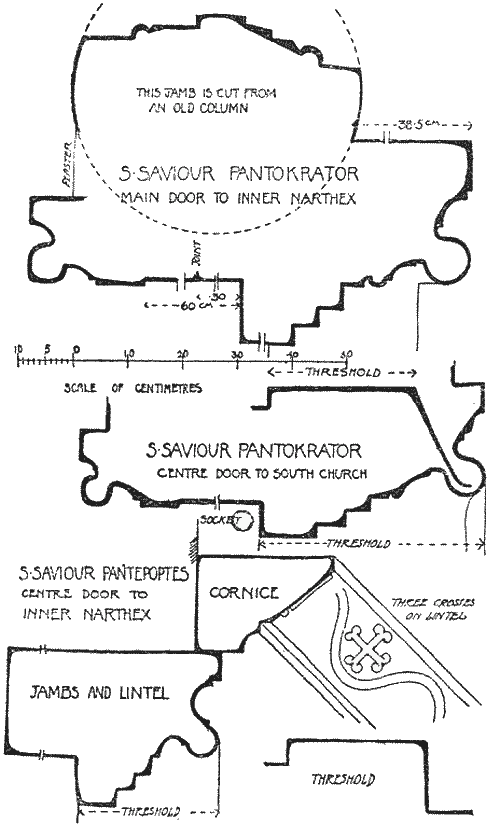 THIS JAMB IS CUT FROM
AN OLD COLUMN
38.5 CM
PLASTER
S·SAVIOUR PANTOKRATOR
MAIN DOOR TO INNER NARTHEX
JOINT
30
60 CM
10 5 0 10 20 30 40 50
THRESHOLD
SCALE OF CENTIMETRES
S·SAVIOUR PANTOKRATOR
CENTRE DOOR TO SOUTH CHURCH
SOCKET
THRESHOLD
S·SAVIOUR PANTEPOPTES
CENTRE DOOR TO
INNER NARTHEX
CORNICE
THREE CROSSES
ON LINTEL
JAMBS AND LINTEL
THRESHOLD
THRESHOLD